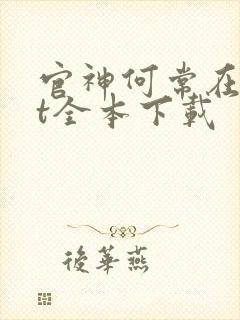 官神何常在
t全本下載
後華燕